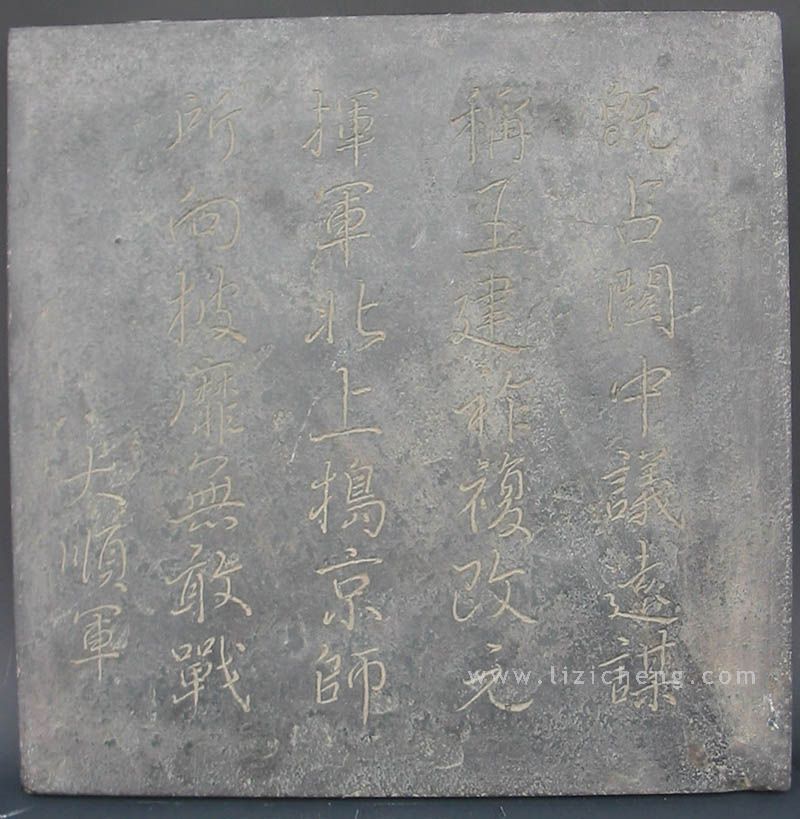 既占關中議遠謀
稱王建祚複改元
揮軍北上搗京師
所向披靡無敢戰
大順軍
www.lizicheng.com